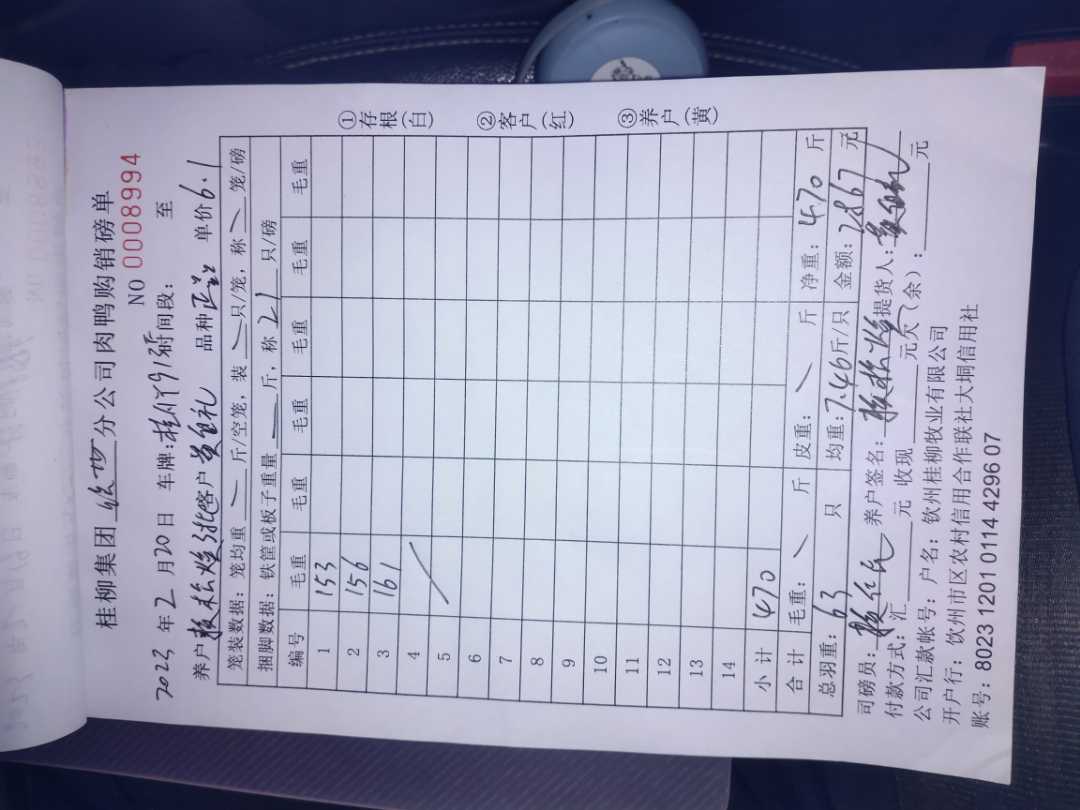 桂柳集团 分公司肉鸭购销磅单
NO 0008994
2023 年 2 月 20 日 车牌: 时间段: 至
养户 客户 品种 正品 单价 6.1
笼装数据: 笼均重 斤/空笼, 装 只/笼, 称 笼/磅
捆脚数据: 铁筐或板子重量 斤, 称 21 只/磅
编号 毛重 毛重 毛重 毛重 毛重 毛重
1 153
2 156
3 161
4
5
6
7
8
9
10
11
12
13
14
小计 470
合计 毛重: 斤 皮重: 斤 净重: 470 斤
总羽重: 63 只 均重: 7.46 斤/只 金额: 2867 元
司磅员: 养户签名: 提货人:
付款方式: 汇 元 收现 元欠(余): 元
公司汇款帐号: 户名: 钦州桂柳牧业有限公司
开户行: 钦州市区农村信用合作联社大垌信用社
账号: 8023 1201 0114 4296 07
①存根(白)
②客户(红)
③养户(黄)